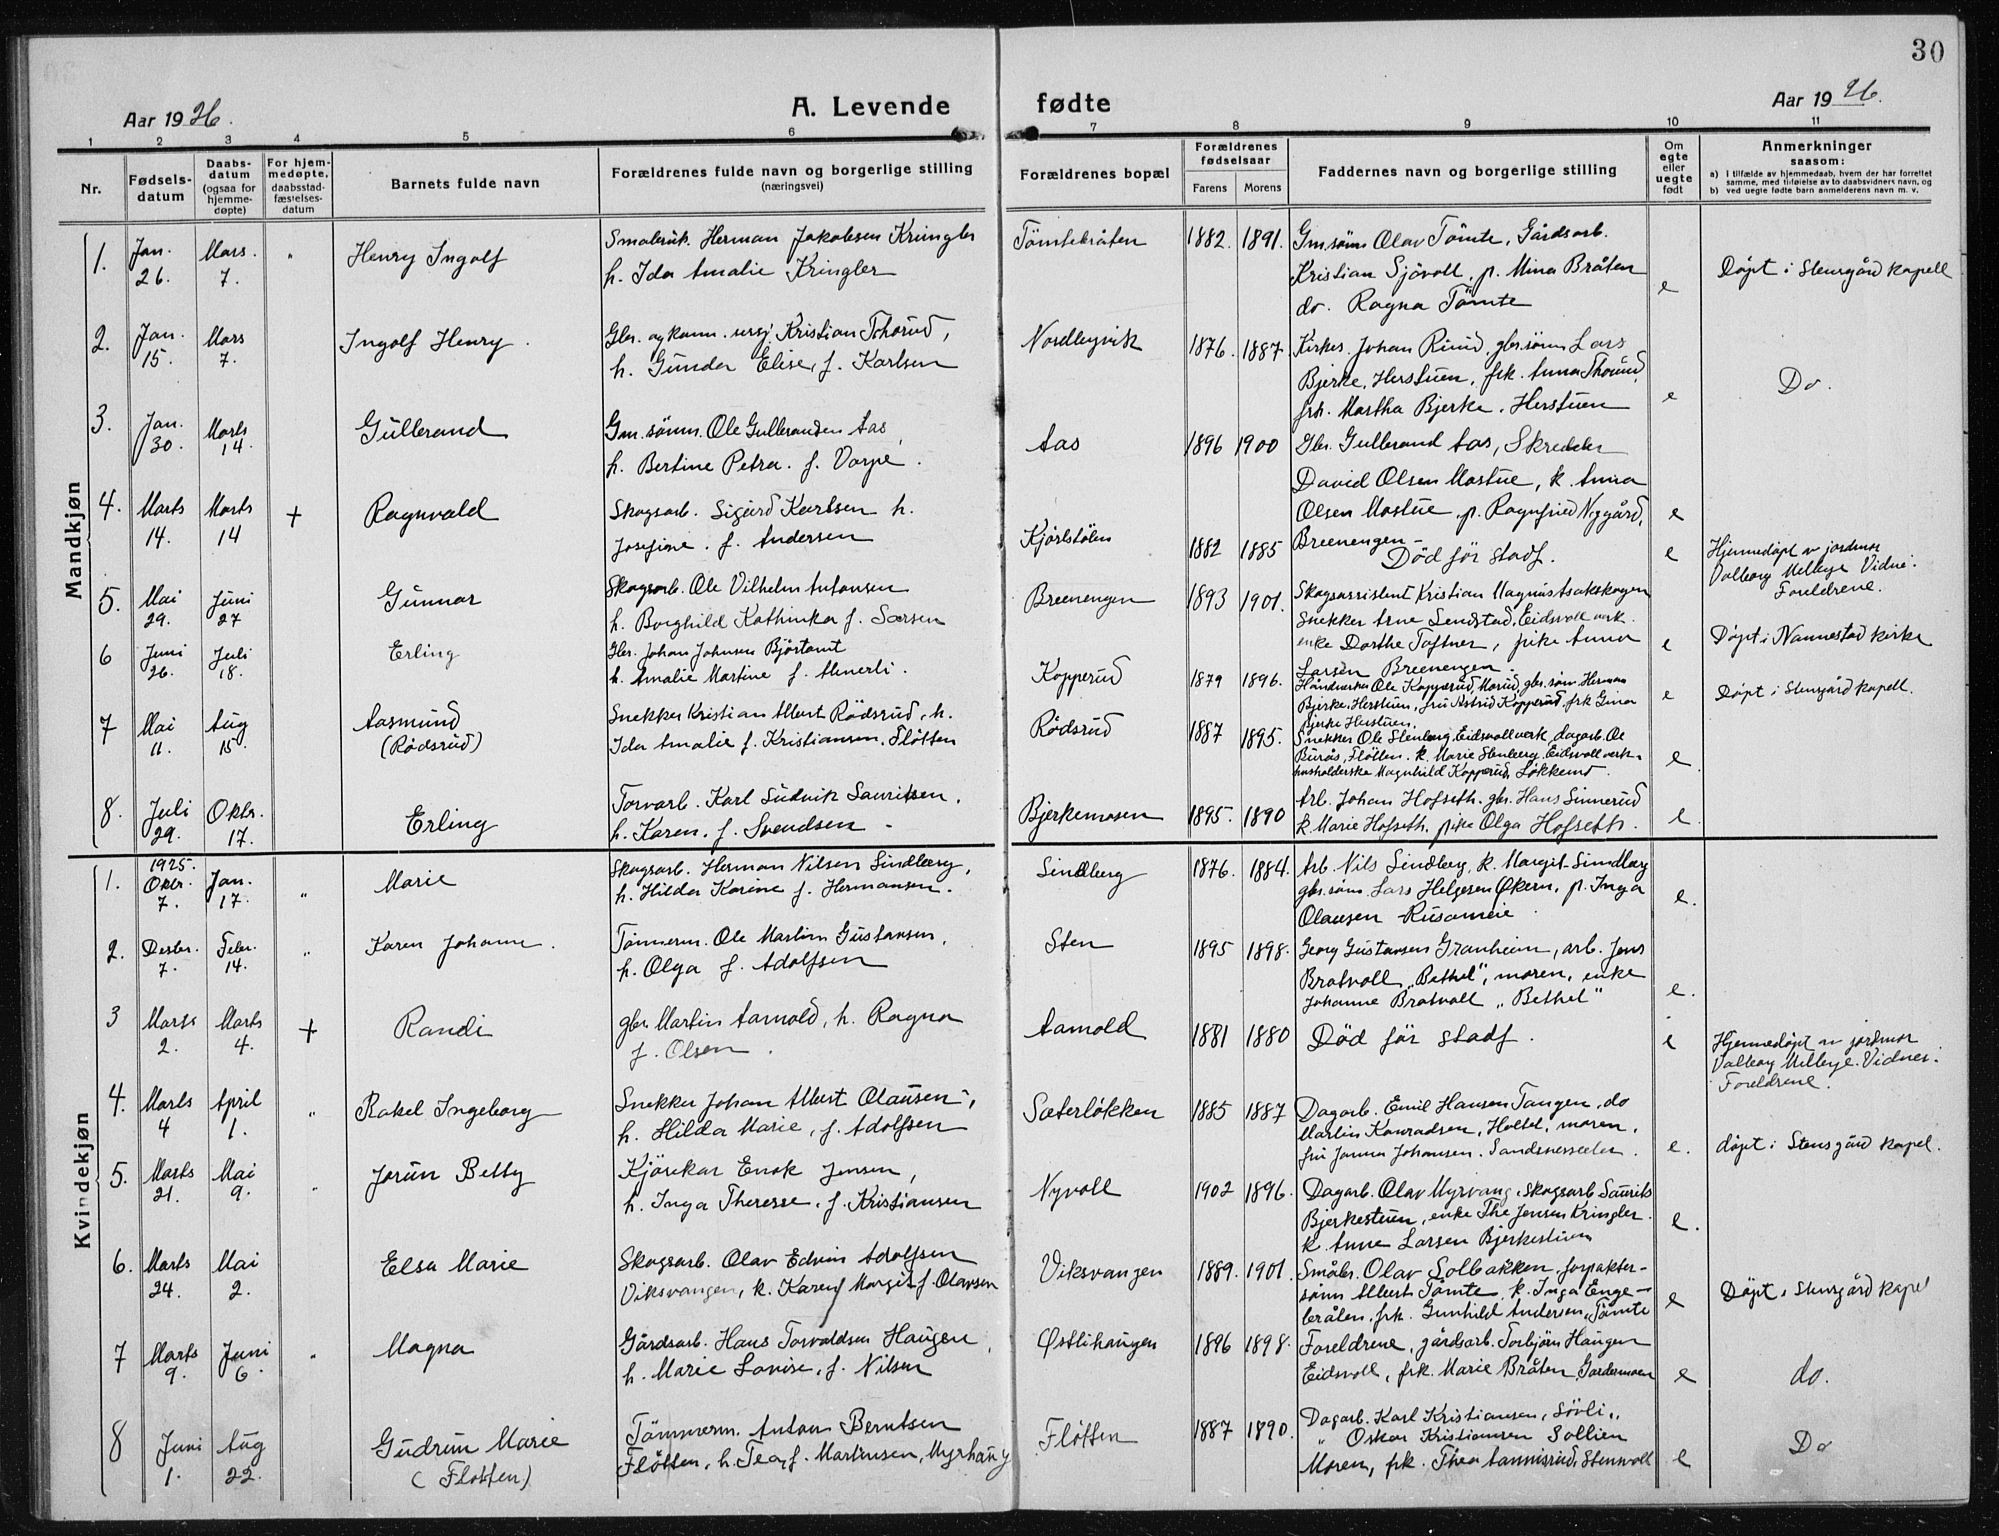 30
Aar 1926.
A. Levende fødte
Aar 1926.
1 2 3 4 5 6 7 8 9 10 11
Nr.
Fødsels-
datum
Daabs-
datum
(ogsaa for
hjemme-
døpte)
For hjem-
medøpte,
daabsstad-
fæstelses-
datum
Barnets fulde navn
Forældrenes fulde navn og borgerlige stilling
(næringsvei)
Forældrenes bopæl
Forældrenes
fødselsaar
Farens Morens
Faddernes navn og borgerlige stilling
Om
egte
eller
uegte
født
Anmerkninger
saasom:
a) I tilfælde av hjemmedaab, hvem der har forrettet
samme, med tilføielse av to daabsvidners navn, og
b) ved uegte fødte barn anmelderens navn m. v.
Mandkjøn
1. Jan. 26. Mars. 7. "
Henry Ingolf
Smabruk. Herman Jakobsen Kringler
h. Ida Amalie Kringler
Tömtebråten
1882. 1891.
Gm.sönn Olav Tömte, Gårdsarb.
Kristian Sjövoll, p. Mina Bråten
do. Ragna Tömte
e
Döpt i Stensgård kapell
2. Jan. 15. Mars 7.
Ingolf Henry.
Gbr. og kom. Kristian Thorud,
h. Gunda Elise, f. Karlsen
Nordbyvik
1876. 1887
Kirkes. Johan Ruud, gbr.sönn Lars
Bjerke, Herstuen, frk. Anna Thorud,
frk. Martha Bjerke. Herstuen
e
Do.
3. Jan. 30. Marts 14.
Gullerand
Gm. sönn. Ole Gulleranden Aas,
h. Bertine Petra. f. Varpe.
Aas
1896 1900
Gbr. Gullerand Aas, Skredder
David Olsen Mostue, k. Anna
Olsen Mostue, p. Ragnfried Nygård,
Breenengen
e
4. Marts 14. Marts 14 +
Ragnvald
Skogsarb. Sigurd Karlsen h.
Josefine. f. Andersen
Kjörlstölen
1882 1885
Död för stadf.
e
Hjemmedöpt av jordmor
Valborg Melbye Vidne:
Foreldrene.
5. Mai 29. Juni 27
Gunnar
Skogsarb. Ole Vilhelm Antonsen
h. Borghild Kathinka f. Larsen
Breenengen
1893 1901.
Skogsassistent Kristian Magnus
Snekker Arne Lundstad, Eidsvoll verk.
enke Dorthe Toftner, pike Anna
Larsen Breenengen.
e
Döpt i Nannestad kirke
6 Juni 26. Juli 18.
Erling
Gbr. Johan Johnsen Björtomt
h. Amalie Martine f. Almerli.
Kopperud
1879 1896.
Håndverker Ole Kopperud, Morud, gbr. sönn Herman
Bjerke, Herstuen, fru Astrid Kopperud, frk Gina
Bjerke Herstuen.
e
Döpt i Stensgård kapell.
7 Mai 11. Aug 15.
Aasmund
(Rödsrud)
Snekker Kristian Albert Rödsrud, h.
Ida Amalie f. Kristiansen. Flötten
Rödsrud
1887 1895.
Snekker Ole Stenberg, Eidsvollverk, dagarb. Ole
Burås, Flötten. k. Marie Stenberg, Eidsvoll verk.
husholderske Magnhild Kopperud, Lökkemo.
e.
8. Juli 29. Oktr. 17.
Erling
Torvarb. Karl Ludvik Lauritsen,
h. Karen. f. Svendsen –
Bjerkemosen
1895. 1890
Arb. Johan Hofseth. gbr. Hans Sinnerud
k. Marie Hofseth, pike Olga Hofseth.
e.
Kvindekjøn
1. 1925. Oktr. 7. Jan. 17. "
Marie
Skogsarb. Herman Nilsen Lindberg,
h. Hilda Karine f. Hermansen.
Lindberg
1876. 1884.
Arb. Nils Lindberg, k. Margit. Lindberg
gbr.sönn Lars Helgesen Økern, p. Inga
Olausen Rusameie
e.
2. Desbr. 7. Febr. 14. "
Karen Johanne.
Tömmerm. Ole Martin Gustavsen,
h. Olga f. Adolfsen
Sten
1895 1898.
Georg Gustavsen Granheim, arb. Jens
Bratvoll „Bethel", moren, enke
Johanne Bratvoll „Bethel"
e.
3 Marts 2. Marts 4. +
Randi
gbr. Martin Aamold, h. Ragna
f. Olsen.
Aamold
1881 1880
Död för stadf.
e
Hjemmedöpt av jordmor
Valborg Melbye. Vidner:
Foreldrene.
4. Marts 4 April 1. "
Rakel Ingeborg
Snekker Johan Albert Olausen,
h. Hilda Marie, f. Adolfsen
Sæterlökken
1885 1887
Dagarb. Emil Hansen Tangen, do
Martin Konradsen, Holtet, moren,
fru Johansen.
e.
döpt i Stensgård kapel.
5. Marts 21. Mai 9. "
Jorun Betty
Kjörekar Enok Jensen,
h. Inga Therese, f. Kristiansen
Nyvoll
1902 1896.
Dagarb. Olav Myrvang, skogsarb Laurits
Bjerkestuen, enke Thea Jensen Kringler.
k. Anne Larsen Bjerkestuen
e.
6. Marts 24. Mai 2.
Elsa Marie
Skogsarb. Olav Edvin Adolfsen
Viksvangen, k. Karen Margit f. Olavsen
Viksvangen
1889. 1901.
Småbr. Olav Solbakken, forpakter-
sönn Albert Tömte, k. Inga Enge-
bråten, frk. Gunhild Andersen, Tömte
e
Döpt i Stensgård kapel
7 Marts 9. Juni 6. "
Magna
Gårdsarb. Hans Torvaldsen Haugen,
h. Marie Lovise, f. Nilsen
Østlihaugen
1896 1898.
Foreldrene, gårdsarb. Torbjörn Haugen
Eidsvoll, frk. Marie Bråten, Gardermoen
e
do.
8 Juni 1. Aug 22.
Gudrun Marie
(Flötten)
Tömmerm. Anton Berntsen
Flötten, h. Tea, f. Martinsen, Myrhaug
Flötten
1887 1890.
Dagarb. Karl Kristiansen, Sörli,
" Oskar Kristiansen Sollien
Moren, frk. Thea Stenvoll
e
Do